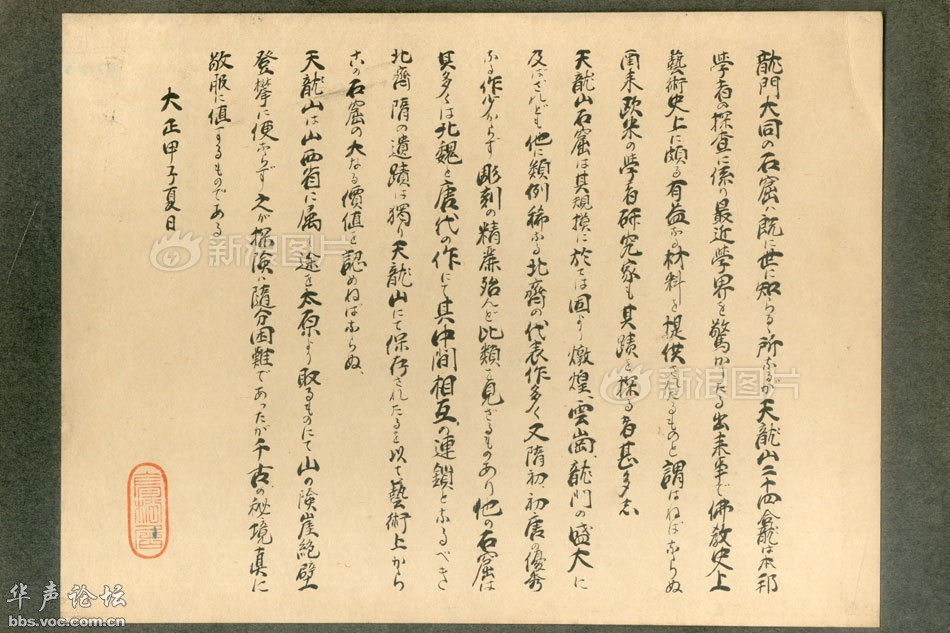 龍門大同の石窟ハ既に世に知らるゝ所なるが天龍山二十四龕は本邦
學者の探査に係り最近學界を驚かしたる出来事で佛教史上
藝術史上に頗る有益なる材料を提供されたるものと謂はねばならぬ
爾来欧米の學者研究家も其蹟を探る者甚多し
天龍山石窟は其規模に於ては固より燉煌、雲崗龍門の盛大に
及ばざれども他に類例稀なる北齊の代表作多く又隋初初唐の優秀
なる作少からず彫刻の精麗殆んど比類を見ざるものあり他の石窟は
其多くは北魏と唐代の作にて其中間相互の連鎖となるべき
北齊隋の遺蹟は獨り天龍山にて保存されたるを以て藝術上から
この石窟の大なる價値を認めねばならぬ、
天龍山は山西省に属し途を太原より取るものにて山の険崖絶壁
登攀に便ならず之が探険ハ隨分困難であつたが千古の秘境真に
敬服に値するものである
大正甲子夏日
新浪图片
新浪图片
华声论坛
bbs.voc.com.cn